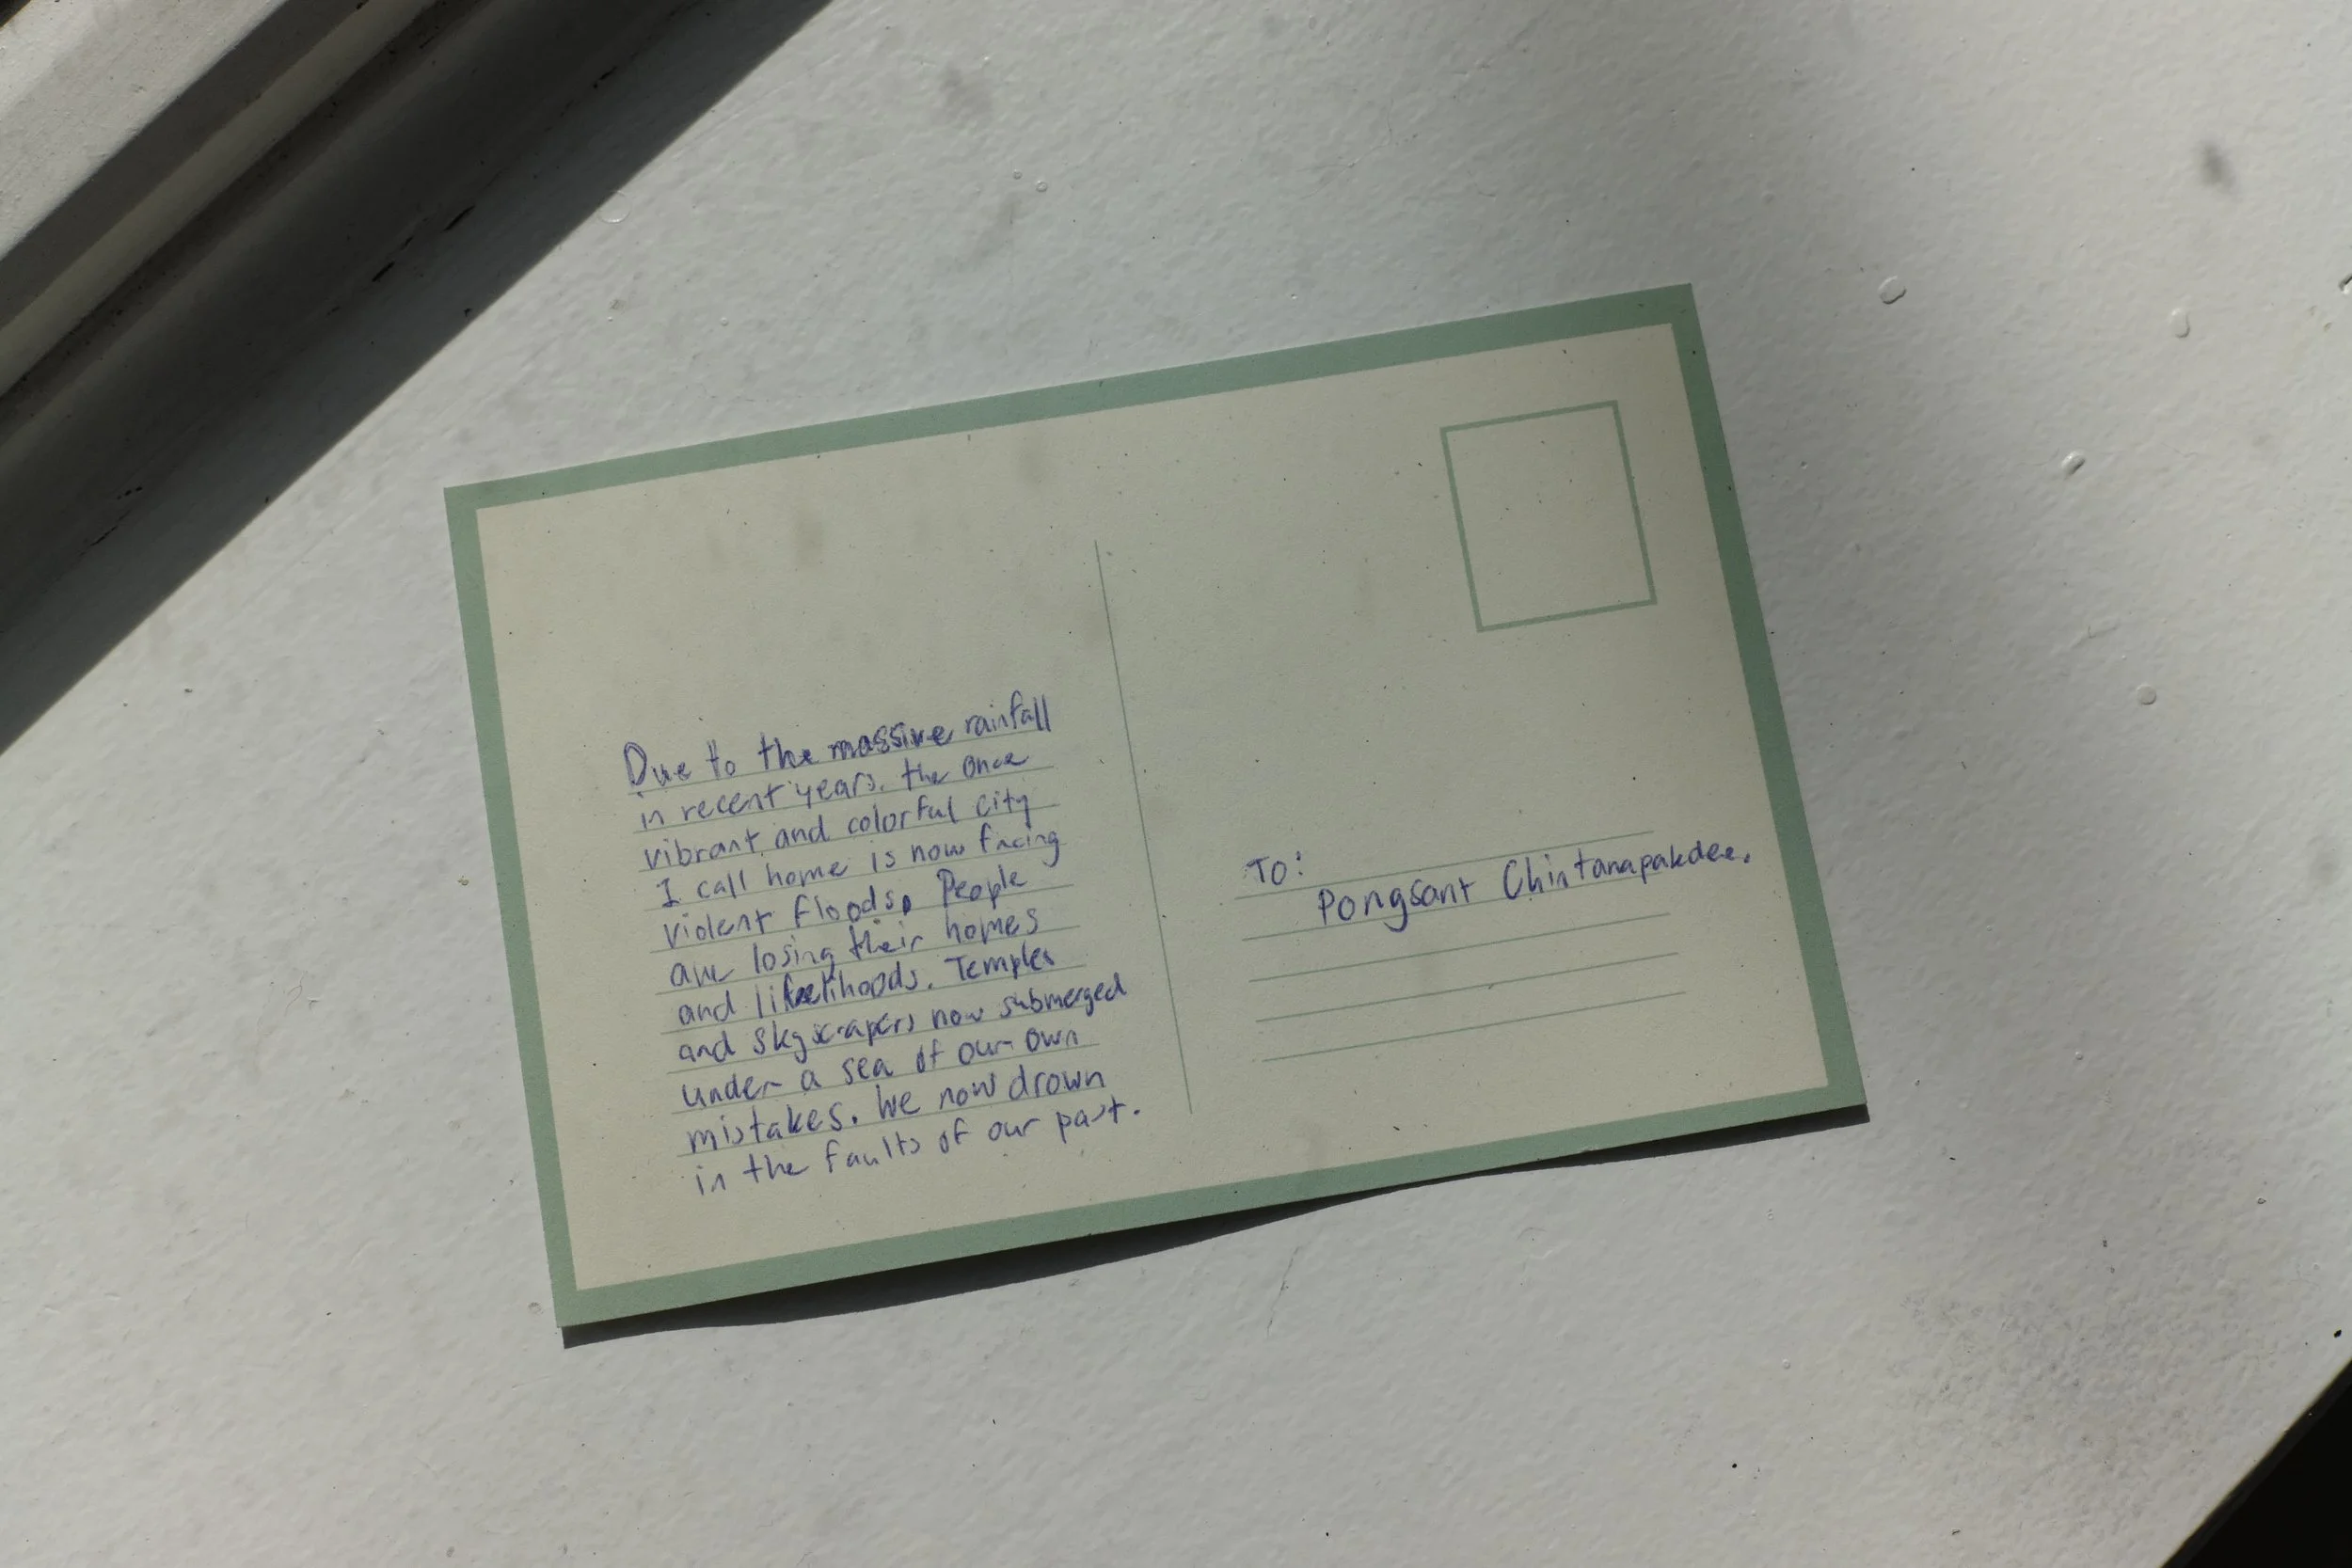 Due to the massive rainfall
in recent years. the once
vibrant and colorful city
I call home is now facing
violent floods. People
are losing their homes
and likelihoods. Temples
and skyscrapers now submerged
under a sea of our own
mistakes. We now drown
in the faults of our past.
TO:
Pongsant Chintanapakdee.